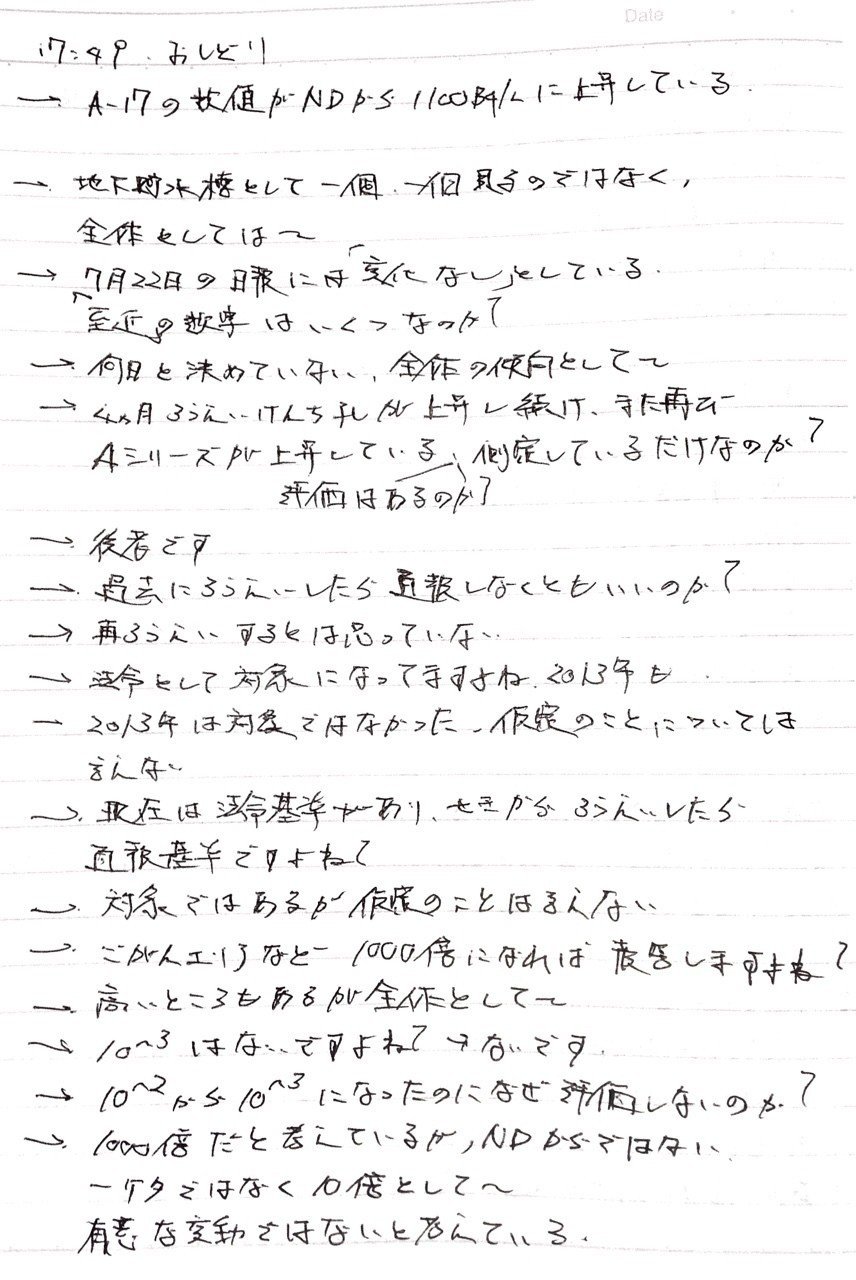 Date
17:49 おしどり
→ A-17の数値がNDから1100Bq/Lに上昇している.
→ 地下貯水槽として一個、一個見るのではなく,
全体としては〜
→ 7月22日の日報には「変化なし」としている.
至近の数字はいくつなのか?
→ 何日と決めていない、全体の傾向として〜
→ 4ヶ月ろうえいけんち孔が上昇し続け、また再び
Aシリーズが上昇している、測定しているだけなのか?
評価はあるのか?
→ 後者です
→ 過去にろうえいしたら通報しなくともいいのか?
→ 再ろうえいするとは思っていない
→ 法令として対象になってますよね、2013年も
→ 2013年は対象ではなかった、仮定のことについては
言えない
→ 現在は法令基準があり、せきからろうえいしたら
通報基準ですよね?
→ 対象ではあるが仮定のことは言えない
→ ごがんエリアなど 1000倍になれば報告しますよね?
→ 高いところもあるが全体として〜
→ 10^3はないですよね?→ないです.
→ 10^2から10^3になったのになぜ評価しないのか?
→ 1000倍だと考えているが, NDからではない、
一ケタではなく10倍として〜
有意な変動ではないと考えている.